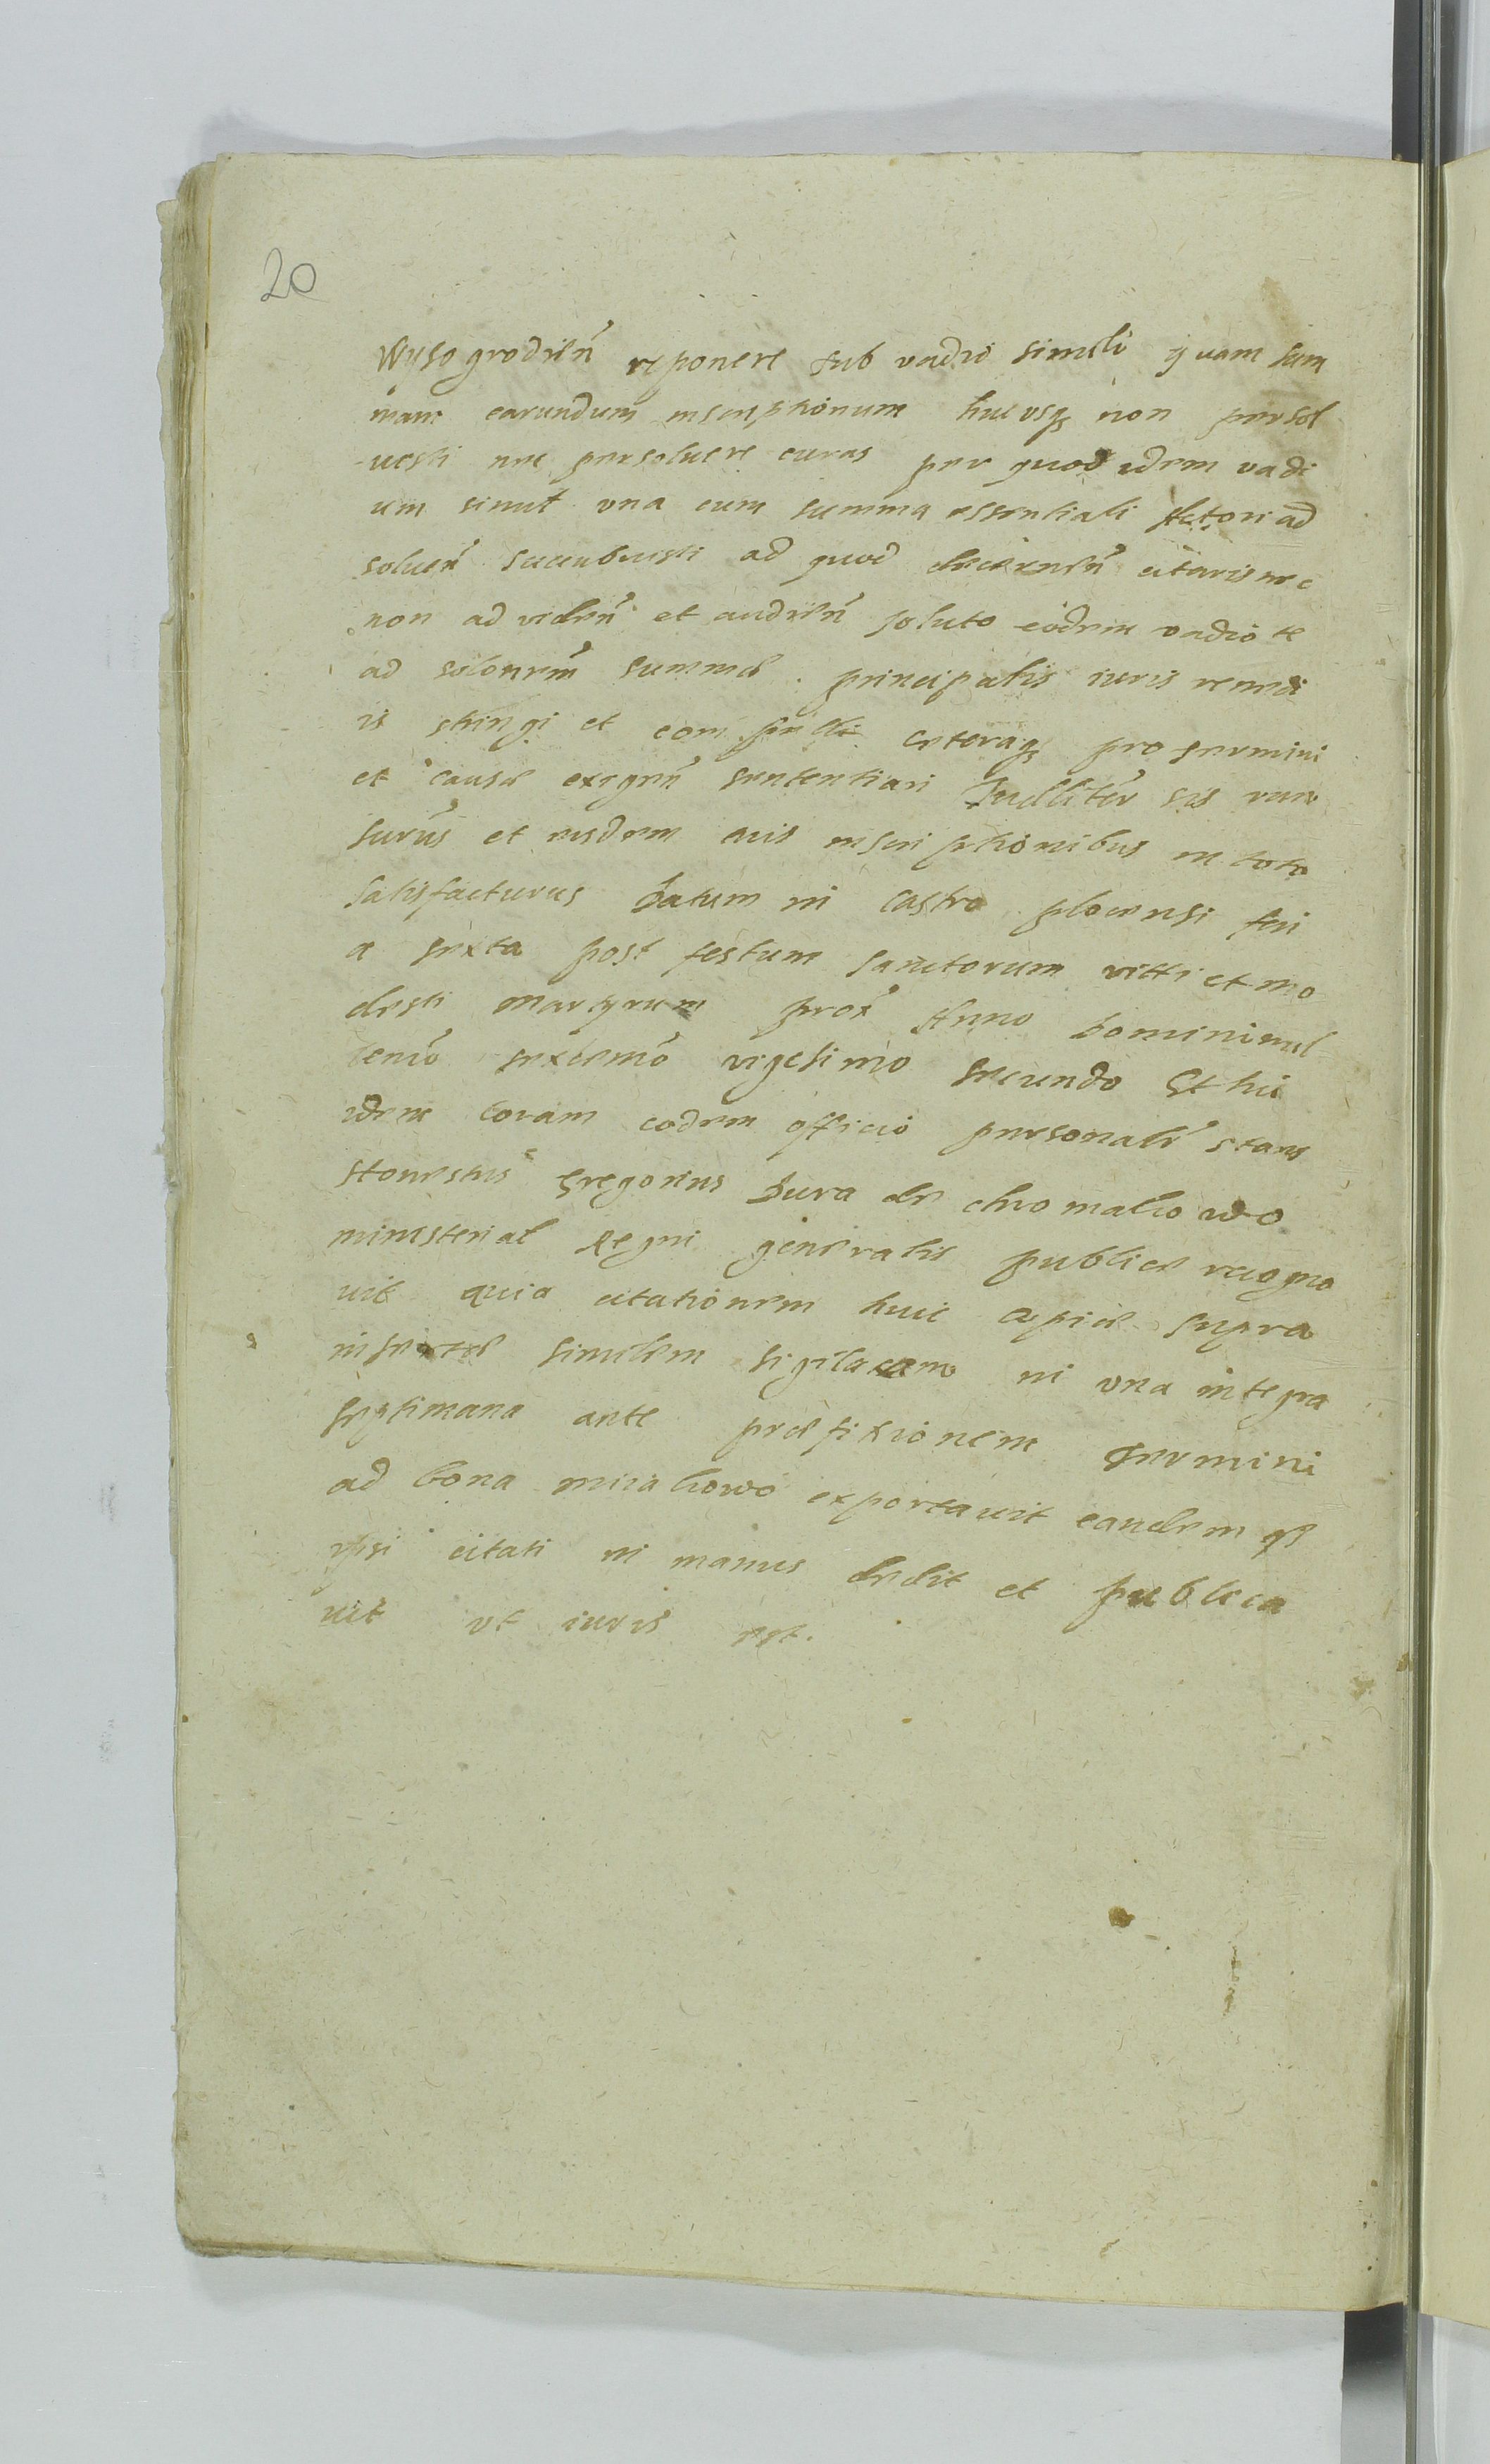 20
Wysogrodień reponere sub vadio simili quam sum
mam earundum inscriptionum huc vsq non persol
uesti nec persoluere curas per quod idem vadi
um simul vna cum summa essentiali Actori ad
soluen̄ succubuisti ad quod decernen̄ citaris nec
non ad viden̄ et audien̄ soluto eodem vadio te
ad solonem̄ summæ principalis iuris remedi
is stringi et compelli cæteraq pro termini
et causæ exigen̄ sententiari Iudlitėr sis
surus et eisdem inscriptionibus in toto
satisfacturus Datum in castro plocensi feri
a sexta post festum sanctorum vitti et mo
desti martyrum prox̄ Anno Domini mil
lenio sexcenmo vigesimo secundo Et hic
idem coram eodem officio personali stans
Honestus Gregorius Dura de chromalowo
ministerial Regni generalis publice recogno
uit quia citationem huic copiæ supra
insertæ similem in vna integra
septimana ante præfixionem termini
ad bona exportauit eandem q
ipsi citati in manus dedit et publica
uit vt iuris est.